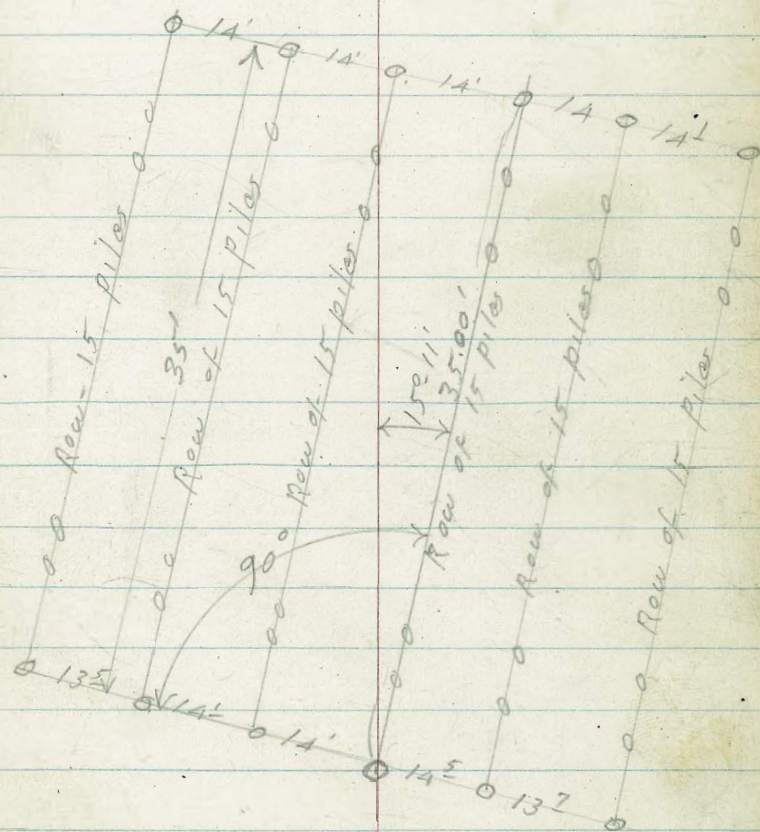 14' 14' 14' 14 14¹
Row - 15 Piles
35'
Row of 15 Piles
Row of 15 piles
15° 11'
35.00'
Row of 15 Piles
Row of 15 piles
Row of 15 Piles
90°
13⁵ 14' 14' 14⁵ 13⁷